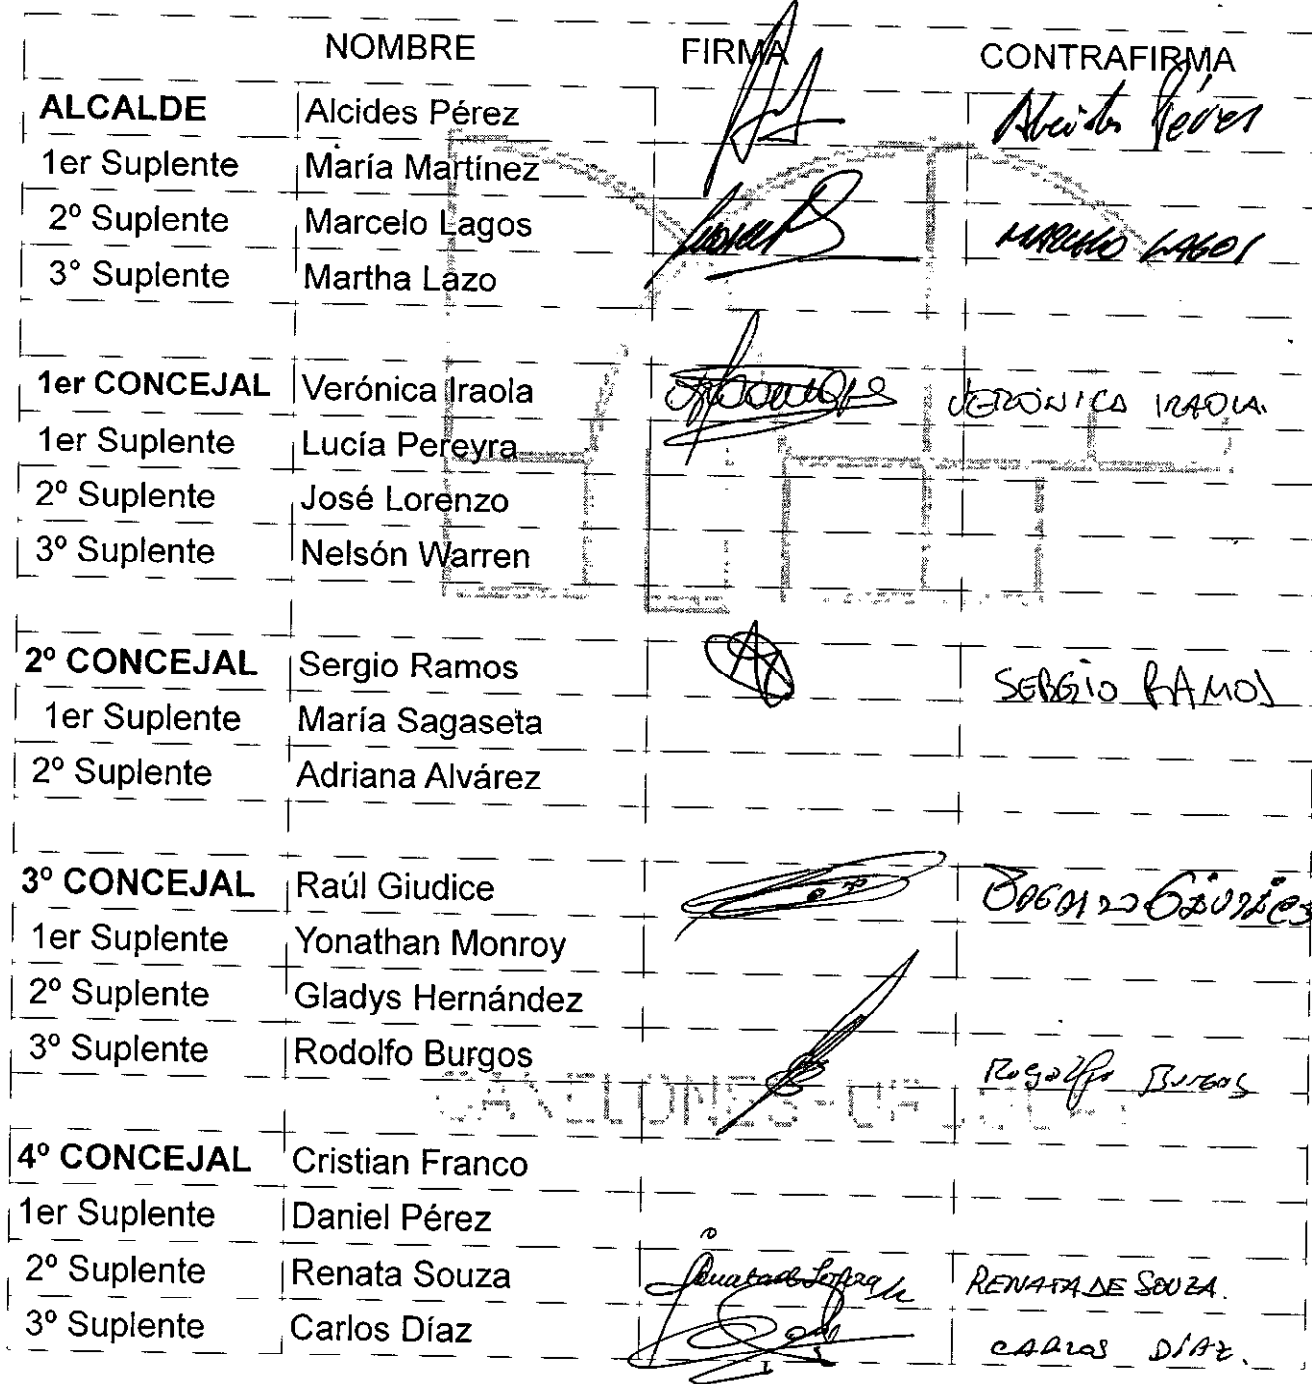 NOMBRE FIRMA CONTRAFIRMA
ALCALDE Alcides Pérez Alcides Pérez
1er Suplente María Martínez
2º Suplente Marcelo Lagos MARCELO LAGOS
3° Suplente Martha Lazo
1er CONCEJAL Verónica Iraola VERÓNICA IRAOLA.
1er Suplente Lucía Pereyra
2º Suplente José Lorenzo
3º Suplente Nelsón Warren
2º CONCEJAL Sergio Ramos SERGIO RAMOS
1er Suplente María Sagaseta
2º Suplente Adriana Alvárez
3º CONCEJAL Raúl Giudice
1er Suplente Yonathan Monroy
2º Suplente Gladys Hernández
3º Suplente Rodolfo Burgos Rodolfo Burgos
CANELONES
4º CONCEJAL Cristian Franco
1er Suplente Daniel Pérez
2º Suplente Renata Souza RENATA DE SOUZA.
3º Suplente Carlos Díaz CARLOS DÍAZ.